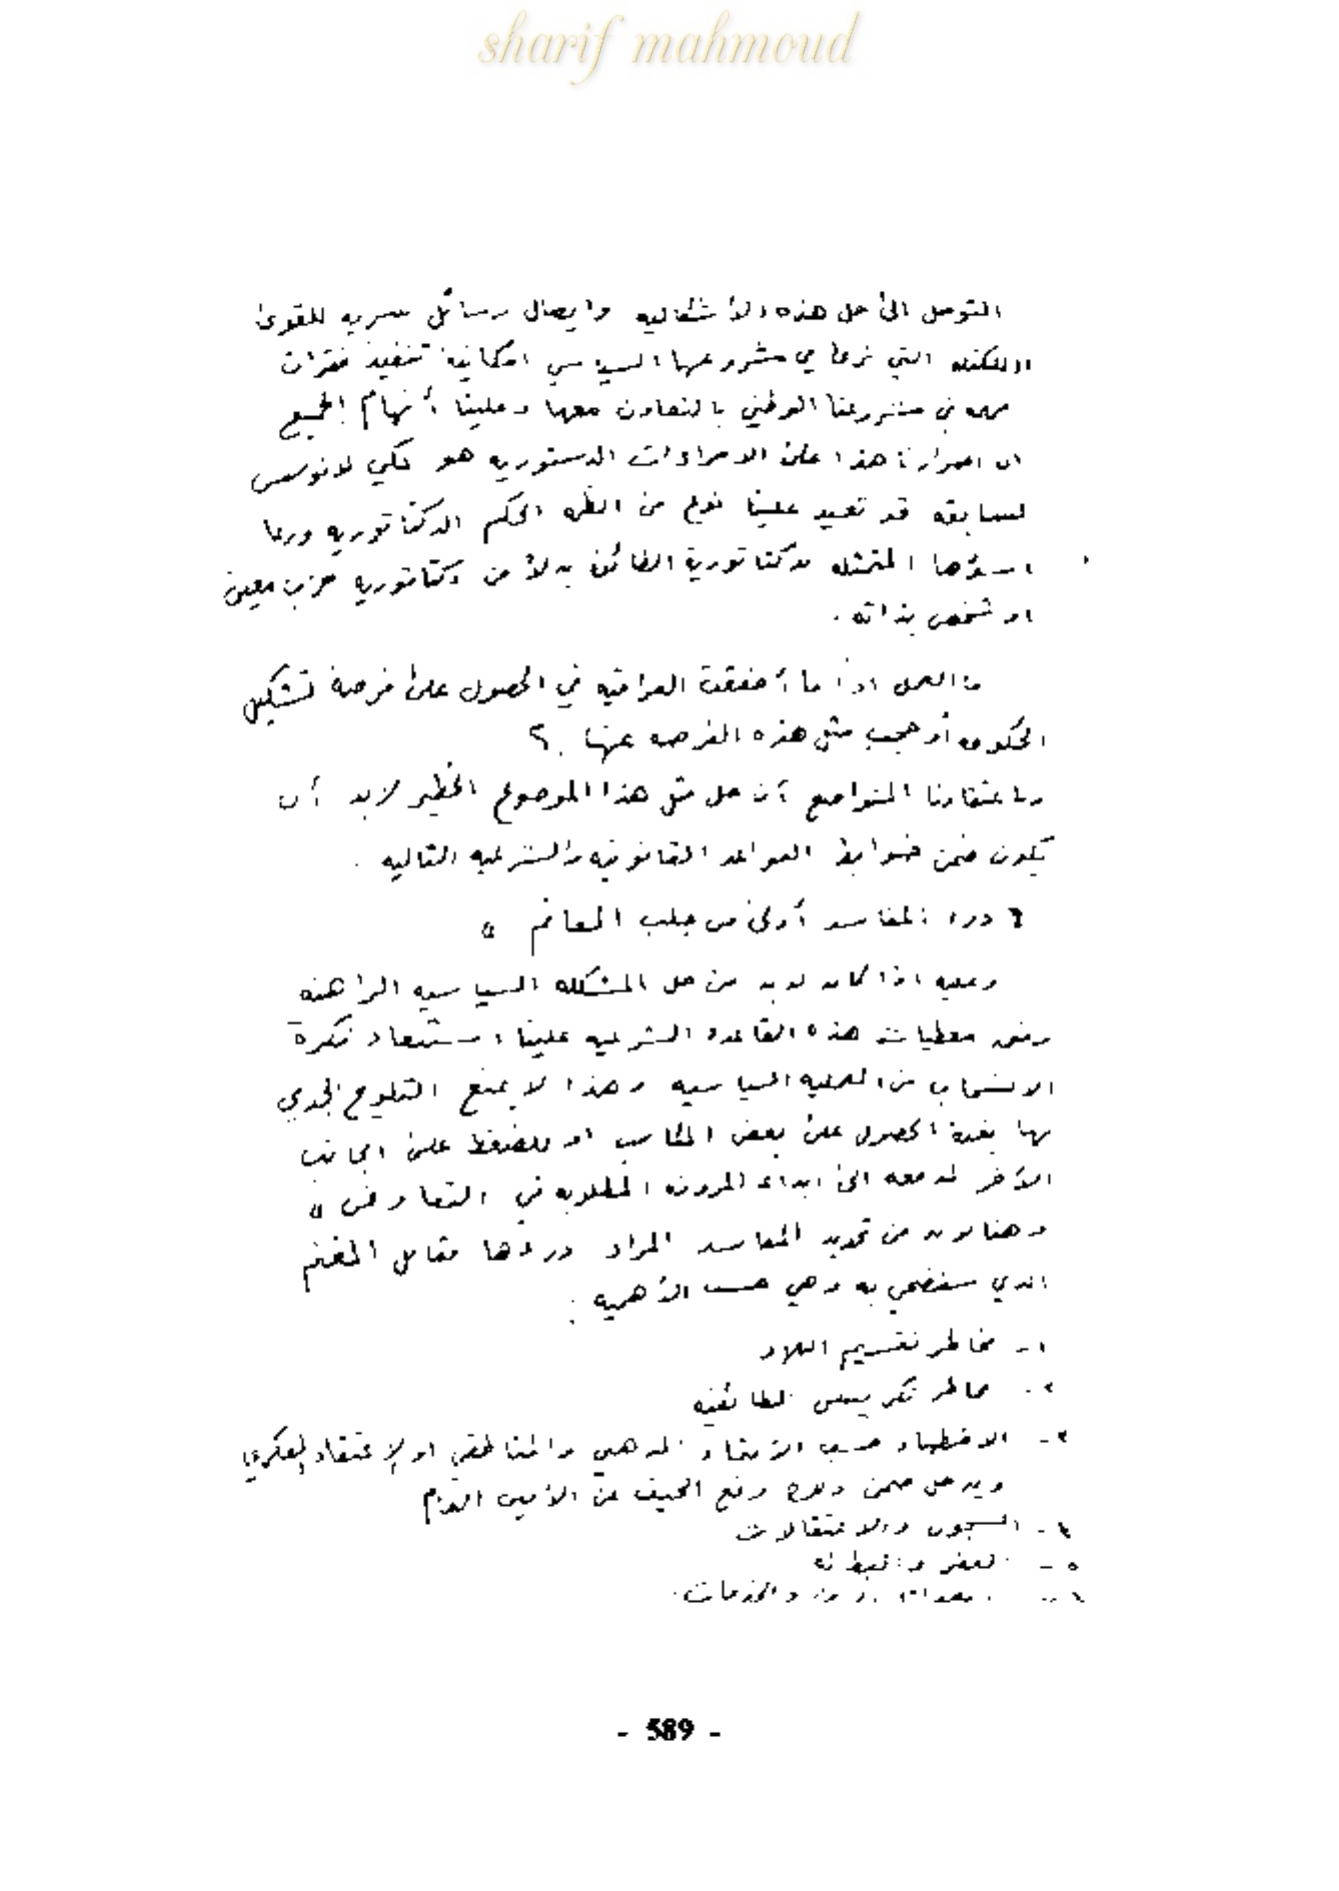 sharif mahmoud
التوصل الى حل هذه الاشكاليه وايصال رسائل سريه للقوى
التي نرى في مشروعها السياسي امكانية تنفيذ فقرات
مهمه في مشروعنا الوطني بالتعاون معها وعلينا أفهام الجميع
ان اصرارنا هذا على الاجراءات الدستوريه هو لكي لا نؤسس
لسابقه قد تعيد علينا نوع من انظمة الحكم الدكتاتوريه وربما
اسوؤها المتمثله بدكتاتورية الطائفة بدلاً من دكتاتورية حزب معين
او شخص بذاته .
ما العمل اذا ما أخفقت العراقيه في الحصول على فرصة تشكيل
الحكومه أو حجب مثل هذه الفرصه عنها . ؟
وباعتقادنا المتواضع أن حل مثل هذا الموضوع الخطير لابد أن
يكون ضمن ضوابط القواعد القانونيه والشرعيه التاليه .
درء المفاسد أولى من جلب المغانم "
وعليه اذا كان لابد من حل المشكله السياسيه الراهنه
وفق معطيات هذه القاعده الشرعيه علينا استبعاد فكرة
الانسحاب من العمليه السياسيه وهذا لا يمنع التلويح الجدي
بها بغية الحصول على بعض المكاسب او للضغط على الجانب
الآخر لدفعه الى ابداء المرونه المطلوبه في التفاوض "
وهنا لابد من تحديد المفاسد المراد درءها مقابل المغنم
الذي سنضحي به وهي حسب الأهميه :
١- مخاطر تقسيم البلاد
٢- مخاطر تكريس الطائفيه
٣- الاضطهاد حسب الانتماء المذهبي والمناطقي او الاعتقاد الفكري
ويدخل ضمن ذلك رفع الحيف عن
٤- السجون والاعتقالات
٥- الفقر والبطاله
٦- والخدمات .
- 589 -